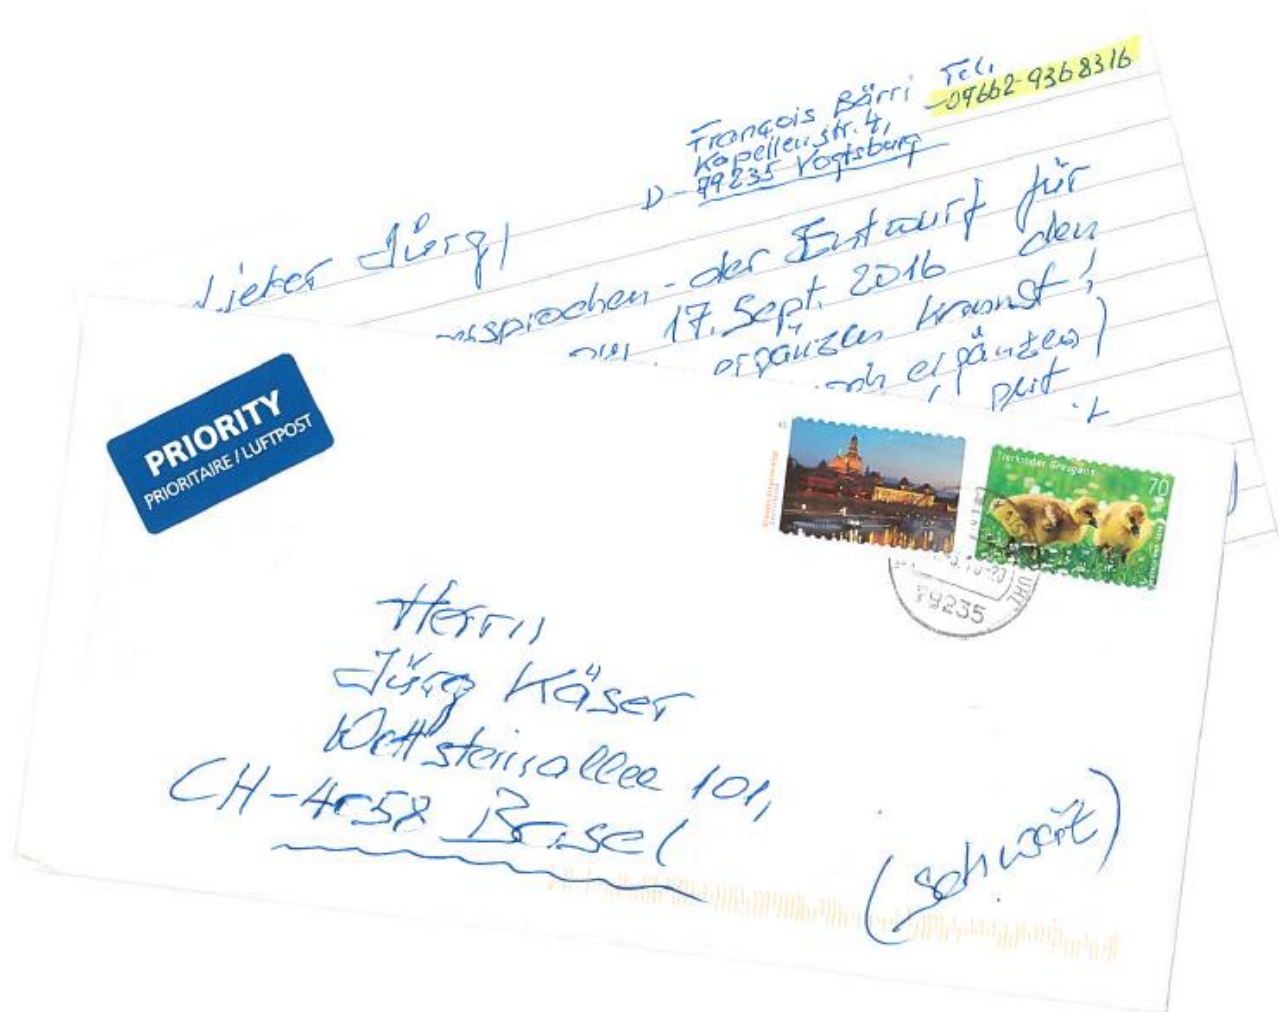 François Bärri Tel.
-07662-9368316
Kapellenstr. 4,
D-79235 Vogtsburg
Lieber Jürg,
sprochen - der Entwurf für
17. Sept. 2016 den
ergänzen kannst!
ergänzen)
PRIORITY
PRIORITAIRE / LUFTPOST
45
Tierkinder Graugans
70
79235
Herrn
Jürg Käser
Wettsteinallee 101,
CH-4058 Basel
(Schweiz)